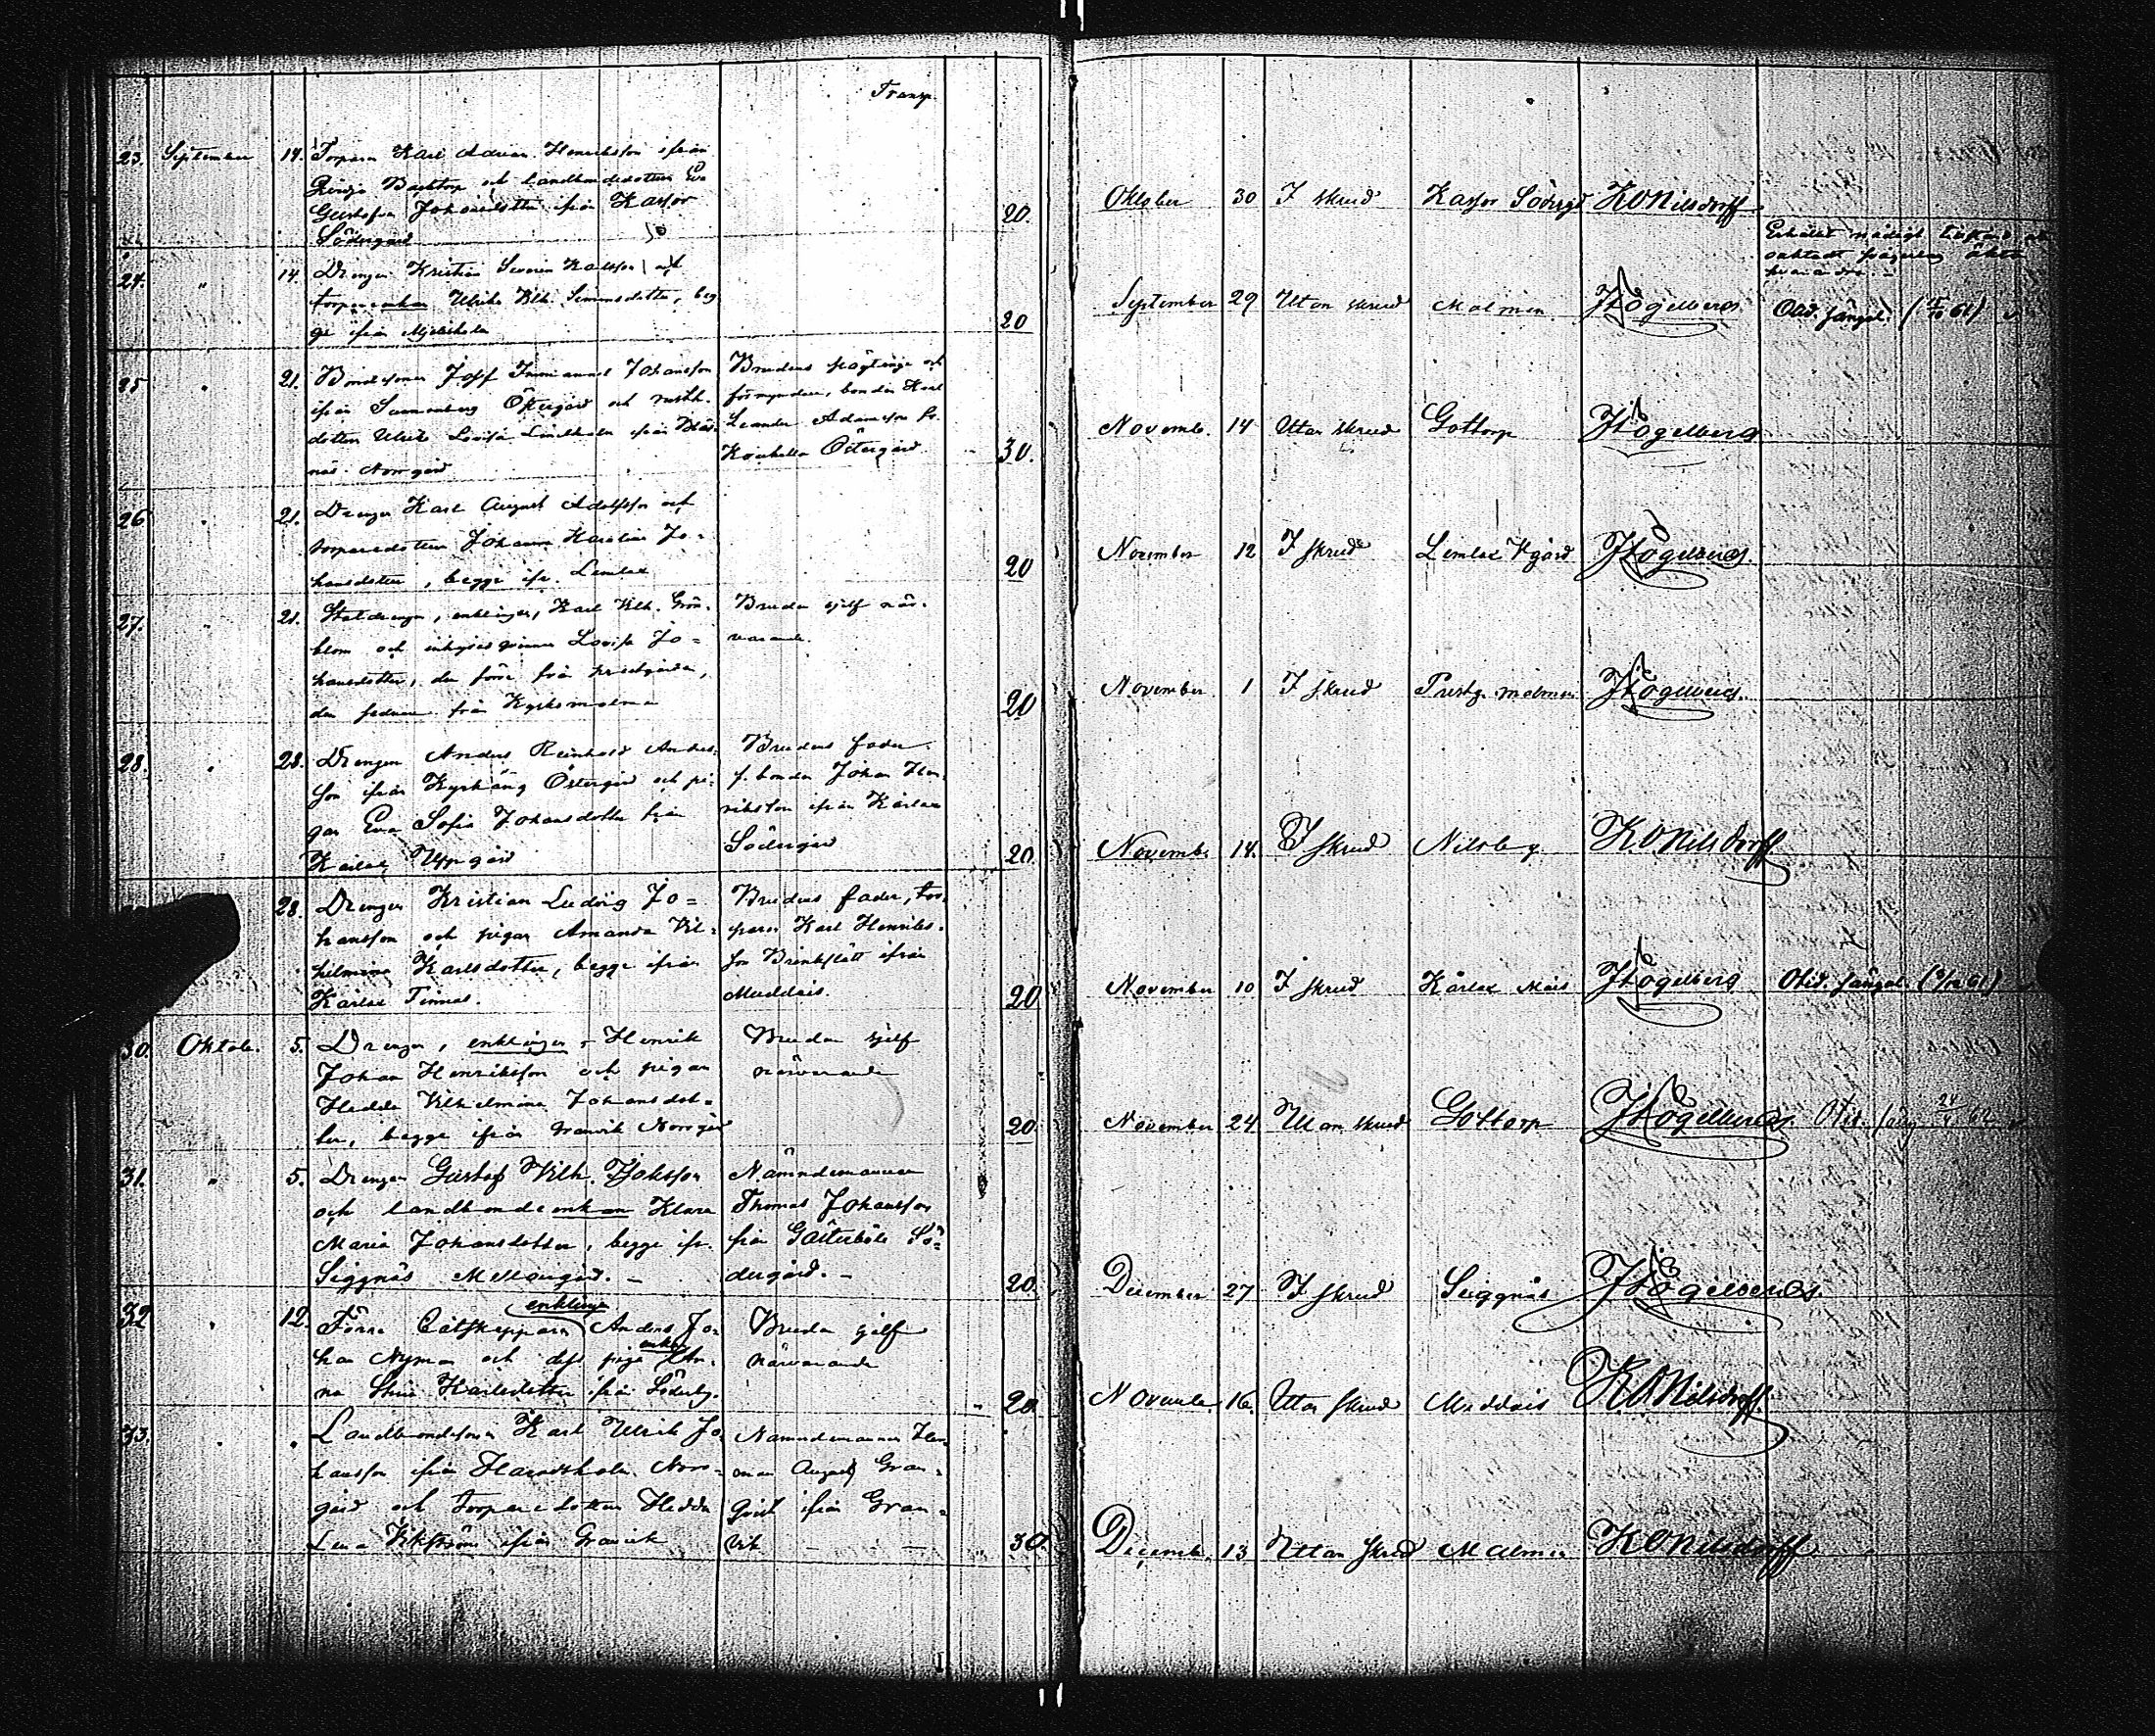 Transp.
23. September 14. Torparn Karl Adrian Henriksson ifrån
Backtorp och landbondedottern Eva
Gustafva Johansdotter ifrån Kasför
Södergård
20.
Oktober 30 I skrud Kasför Södergd KONilsdorff
24. " 14 Drengen Kristian Severin Karlsson och
torpareenkan Ulrika Vilh. Simonsdotter, beg
ge ifrån
20
Erhållit nådigt
oaktadt
hvarandra. -
September 29 Utan skrud Malmen JHögelberg Obd. fängsl.
25 " 21. Bondesonen Josef Immanuel Johansson
ifrån Sunnanberg Östergård och rusth.
dottern Ulrika Lovisa Lindholm ifrån
näs Norrgård
Brudens och
förmyndare, bonden Karl
Leander Adamsson fr.
Östergård.
30.
Novemb. 14 Utan skrud Gottorp JHögelberg
26 " 21. Drengen Karl August Adolfsson och
torparedottern Johanna Karolina Jo=
hansdotter, begge ifr. Lemlax
20
November 12 I skrud Lemlax Vgård JHögelberg
27. " 21. Statdrengen, enklingen, Karl Vilh. Grön-
blom och inhyses qvinnan Lovisa Jo=
hansdotter, den förre från prestgården,
den sednare från Kyrksmalmen
Bruden sjelf när-
varande.
20
November 1 I skrud Prestg. malmen JHögelberg.
28. " 28. Drengen Anders Reinhold Anders-
son ifrån Kyrkäng Östergård och pi-
gan Eva Sofia Johansdotter från
Karlax Uppgård
Brudens fader
f. bonden Johan Hen-
riksson ifrån Kärlax
Södergård
20.
Novembr 14. I skrud Nilsby KONilsdorff
28. Drengen Kristian Ludvig Jo=
hansson och pigan Amanda Vil=
helmina Karlsdotter, begge ifrån
Kärlax Finnas.
Brudens fader, tor-
paren Karl Henriks-
son Brinkslätt ifrån
Muddais.
20
November 10 I skrud Kärlax Mais JHögelberg Obd. fängsl.
30. Oktob. 5. Drengen, enklingen Henrik
Johan Henriksson och pigan
Hedda Vilhelmina Johansdot-
ter, begge ifrån Granvik Norrgård
Bruden sjelf
närvarande
20
November 24 Utan skrud Gottorp JHögelberg.
31. " 5. Drengen Gustaf Vilh. Isaksson
och landbondeenkan Klara
Maria Johansdotter, begge ifr.
Siggnäs Mellangård. -
Nämndemannen
Thomas Johansson
från Galterböle Sö=
dergård. -
20.
December 27 I skrud Siggnäs JHögelberg.
32 " 12. Förre Båtskepparn enklingen Anders Jo-
han Nyman och dess piga enkan An-
na Stina Karlsdotter från Söderby.
Bruden sjelf
närvarande
" 20
Novemb. 16. Utan skrud Muddais KONilsdorff.
33. " " Landbondesonen Karl Ulrik Jo-
hansson ifrån Haradsholm Norr=
gård och torparedottern Hedda
Lena Vikström ifrån Granvik
Nämndemannen Her-
man August Gran-
qvist ifrån Gran-
vik
30.
Decemb. 13 Utan skrud Malmen KONilsdorff